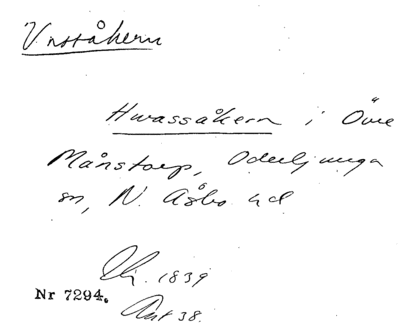 Vassåkern
Hwassåkern i Övre
Månstorp, Oderljunga
sn, N. Åsbo hd
1839
Nr 7294.
Akt 38.